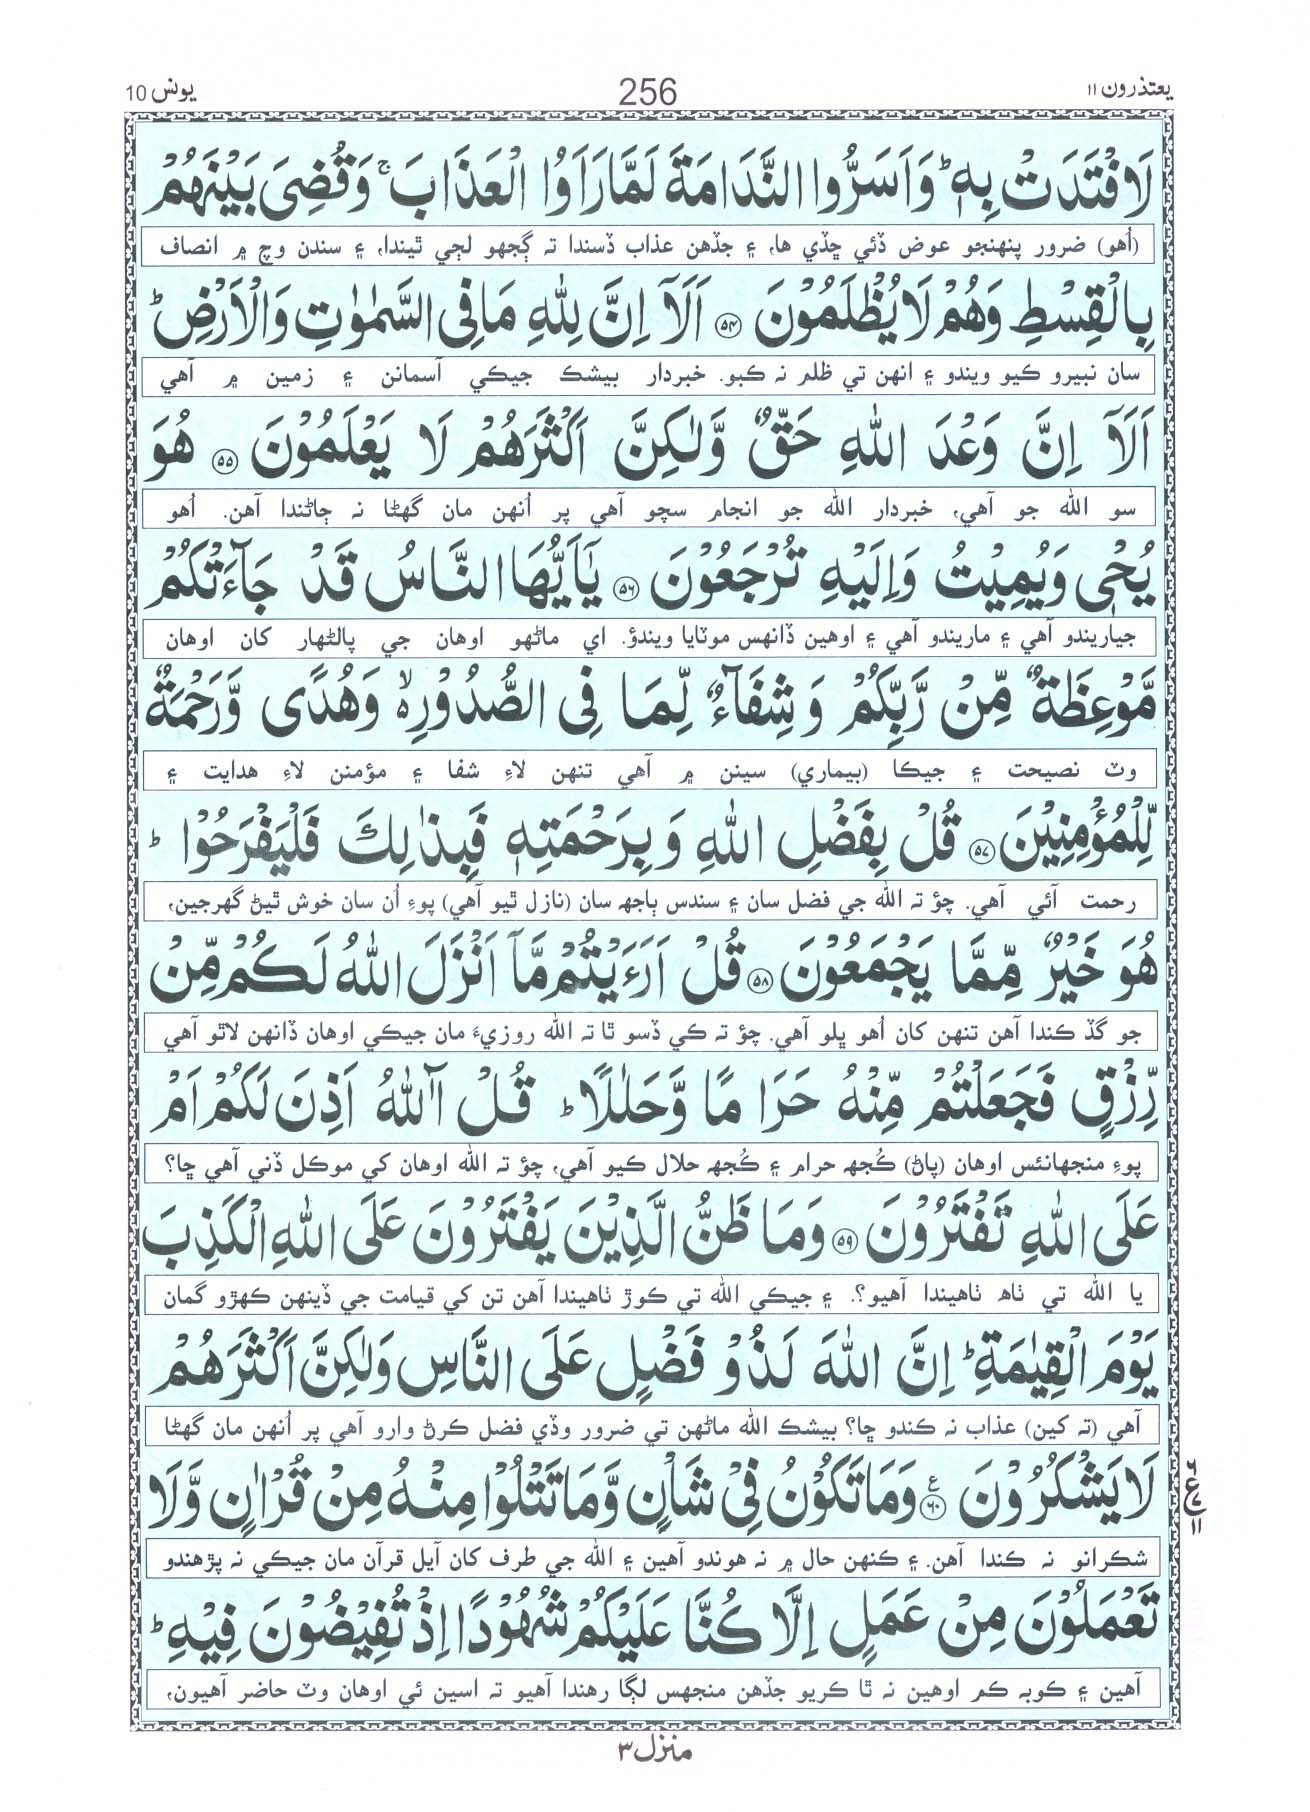 يعتذرون ١١
256
يونس 10
لَافْتَدَتْ بِهٖ ؕ وَاَسَرُّوا النَّدَامَةَ لَمَّا رَاَوُا الْعَذَابَ ۚ وَقُضِىَ بَيْنَهُمْ
(اُهو) ضرور پنهنجو عوض ڏئي ڇڏي ها، ۽ جڏهن عذاب ڏسندا تہ ڳجهو لڄي ٿيندا، ۽ سندن وچ ۾ انصاف
بِالْقِسْطِ وَهُمْ لَا يُظْلَمُوْنَ ۝۵۴ اَلَآ اِنَّ لِلّٰهِ مَا فِى السَّمٰوٰتِ وَالْاَرْضِ ؕ
سان نبيرو ڪيو ويندو ۽ انهن تي ظلم نہ ڪبو. خبردار بيشڪ جيڪي آسمانن ۽ زمين ۾ آهي
اَلَآ اِنَّ وَعْدَ اللّٰهِ حَقٌّ وَّلٰكِنَّ اَكْثَرَهُمْ لَا يَعْلَمُوْنَ ۝۵۵ هُوَ
سو الله جو آهي، خبردار الله جو انجام سچو آهي پر اُنهن مان گهڻا نہ ڄاڻندا آهن. اُهو
يُحْىٖ وَيُمِيْتُ وَاِلَيْهِ تُرْجَعُوْنَ ۝۵۶ يٰٓاَيُّهَا النَّاسُ قَدْ جَآءَتْكُمْ
جياريندو آهي ۽ ماريندو آهي ۽ اوهين ڏانهس موٽايا ويندؤ. اي ماڻهو اوهان جي پالڻهار کان اوهان
مَّوْعِظَةٌ مِّنْ رَّبِّكُمْ وَشِفَآءٌ لِّمَا فِى الصُّدُوْرِ ۙ وَهُدًى وَّرَحْمَةٌ
وٽ نصيحت ۽ جيڪا (بيماري) سينن ۾ آهي تنهن لاءِ شفا ۽ مؤمنن لاءِ هدايت ۽
لِّلْمُؤْمِنِيْنَ ۝۵۷ قُلْ بِفَضْلِ اللّٰهِ وَبِرَحْمَتِهٖ فَبِذٰلِكَ فَلْيَفْرَحُوْا ؕ
رحمت آئي آهي. چؤ تہ الله جي فضل سان ۽ سندس ٻاجهہ سان (نازل ٿيو آهي) پوءِ اُن سان خوش ٿيڻ گهرجين،
هُوَ خَيْرٌ مِّمَّا يَجْمَعُوْنَ ۝۵۸ قُلْ اَرَءَيْتُمْ مَّآ اَنْزَلَ اللّٰهُ لَكُمْ مِّنْ
جو گڏ ڪندا آهن تنهن کان اُهو ڀلو آهي. چؤ تہ کي ڏسو ٿا تہ الله روزيءَ مان جيڪي اوهان ڏانهن لاٿو آهي
رِّزْقٍ فَجَعَلْتُمْ مِّنْهُ حَرَامًا وَّحَلٰلًا ؕ قُلْ آٰللّٰهُ اَذِنَ لَكُمْ اَمْ
پوءِ منجهائنس اوهان (پاڻ) ڪُجهہ حرام ۽ ڪُجهہ حلال ڪيو آهي، چؤ تہ الله اوهان کي موڪل ڏني آهي ڇا؟
عَلَى اللّٰهِ تَفْتَرُوْنَ ۝۵۹ وَمَا ظَنُّ الَّذِيْنَ يَفْتَرُوْنَ عَلَى اللّٰهِ الْكَذِبَ
يا الله تي ٺاهہ ٺاهيندا آهيو؟. ۽ جيڪي الله تي ڪوڙ ٺاهيندا آهن تن کي قيامت جي ڏينهن ڪهڙو گمان
يَوْمَ الْقِيٰمَةِ ؕ اِنَّ اللّٰهَ لَذُوْ فَضْلٍ عَلَى النَّاسِ وَلٰكِنَّ اَكْثَرَهُمْ
آهي (تہ کين) عذاب نہ ڪندو ڇا؟ بيشڪ الله ماڻهن تي ضرور وڏي فضل ڪرڻ وارو آهي پر اُنهن مان گهڻا
لَا يَشْكُرُوْنَ ۝۶۰ ع وَمَا تَكُوْنُ فِىْ شَاْنٍ وَّمَا تَتْلُوْا مِنْهُ مِنْ قُرْاٰنٍ وَّلَا
شڪرانو نہ ڪندا آهن. ۽ ڪنهن حال ۾ نہ هوندو آهين ۽ الله جي طرف کان آيل قرآن مان جيڪي نہ پڙهندو
تَعْمَلُوْنَ مِنْ عَمَلٍ اِلَّا كُنَّا عَلَيْكُمْ شُهُوْدًا اِذْ تُفِيْضُوْنَ فِيْهِ ؕ
آهين ۽ ڪوبہ ڪم اوهين نہ ٿا ڪريو جڏهن منجهس لڳا رهندا آهيو تہ اسين ئي اوهان وٽ حاضر آهيون،
منزل ٣